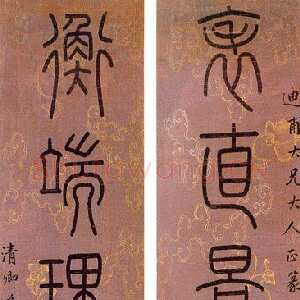 迪甫大兄大人正篆
表直景
衡端理
清卿